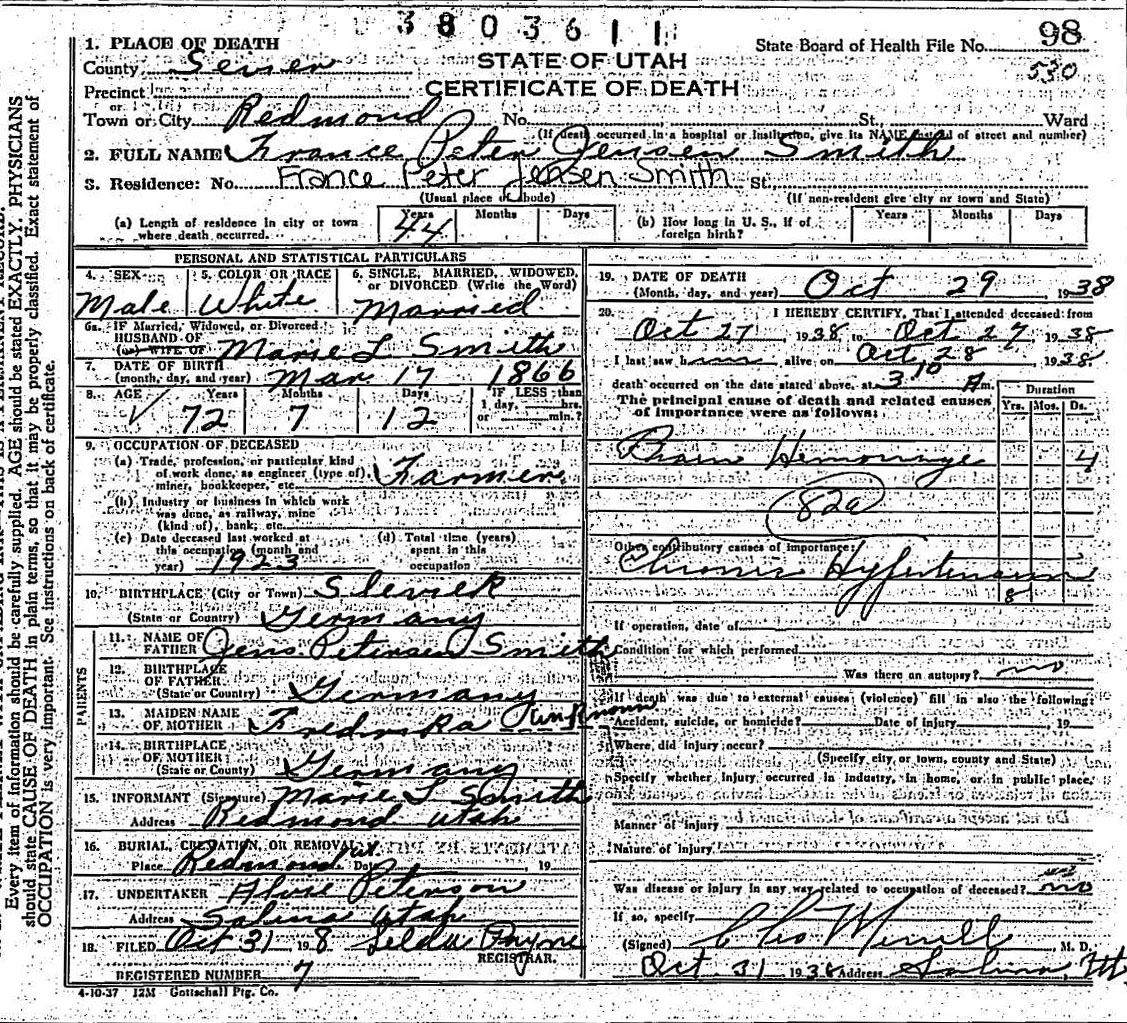 3803611
98
1. PLACE OF DEATH
State Board of Health File No.
530
County Sevier
STATE OF UTAH
Precinct
CERTIFICATE OF DEATH
or
Town or City Redmond No. St., Ward
(If death occurred in a hospital or institution, give its NAME instead of street and number)
2. FULL NAME France Peter Jensen Smith
3. Residence: No. France Peter Jensen Smith St.
(Usual place of abode) (If non-resident give city or town and State)
(a) Length of residence in city or town where death occurred. Years 44 Months Days
(b) How long in U. S., if of foreign birth? Years Months Days
PERSONAL AND STATISTICAL PARTICULARS
4. SEX Male
5. COLOR OR RACE White
6. SINGLE, MARRIED, WIDOWED, or DIVORCED (Write the Word) Married
6a. IF Married, Widowed, or Divorced
HUSBAND OF
(or) WIFE OF Marie L Smith
7. DATE OF BIRTH
(month, day, and year) Mar. 17 1866
8. AGE Years 72 Months 7 Days 12 IF LESS than 1 day, hrs. or min.?
9. OCCUPATION OF DECEASED
(a) Trade, profession, or particular kind
of work done, as engineer (type of)
miner, bookkeeper, etc. Farmer
(b) Industry or business in which work
was done, as railway, mine
(kind of), bank, etc.
(c) Date deceased last worked at
this occupation (month and
year) 1923
(d) Total time (years)
spent in this
occupation
10. BIRTHPLACE (City or Town)
(State or Country) Germany
PARENTS
11. NAME OF
FATHER Jens Petersen Smith
12. BIRTHPLACE
OF FATHER
(State or Country) Germany
13. MAIDEN NAME
OF MOTHER Fredrika Unknown
14. BIRTHPLACE
OF MOTHER
(State or Country) Germany
15. INFORMANT (Signature) Marie L Smith
Address Redmond Utah
16. BURIAL, CREMATION, OR REMOVAL
Place Redmond Ut Date 19
17. UNDERTAKER Peterson
Address Salina Utah
18. FILED Oct 31 1938 Payne
REGISTRAR.
REGISTERED NUMBER 7
4-10-37 12M Gottschall Ptg. Co.
19. DATE OF DEATH
(Month, day, and year) Oct 29 1938
20. I HEREBY CERTIFY, That I attended deceased from
Oct 27 1938 to Oct 27 1938
I last saw h alive on Oct 28 1938
death occurred on the date stated above, at 3 10 A m.
The principal cause of death and related causes
of importance were as follows:
Duration
Yrs. Mos. Ds.
Brain Hemorrage 4
82a
Other contributory causes of importance:
Chronic Hypertension
8
If operation, date of
Condition for which performed
Was there an autopsy? no
If death was due to external causes (violence) fill in also the following:
Accident, suicide, or homicide? Date of injury 19
Where did injury occur?
(Specify city, or town, county and State)
Specify whether injury occurred in industry, in home, or in public place.
Manner of injury
Nature of injury
Was disease or injury in any way related to occupation of deceased? no
If so, specify
(Signed) Merrill, M. D.
Oct. 31 1938 Address Salina, Ut
Every item of information should be carefully supplied. AGE should be stated EXACTLY. PHYSICIANS
should state CAUSE OF DEATH in plain terms, so that it may be properly classified. Exact statement of
OCCUPATION is very important. See instructions on back of certificate.